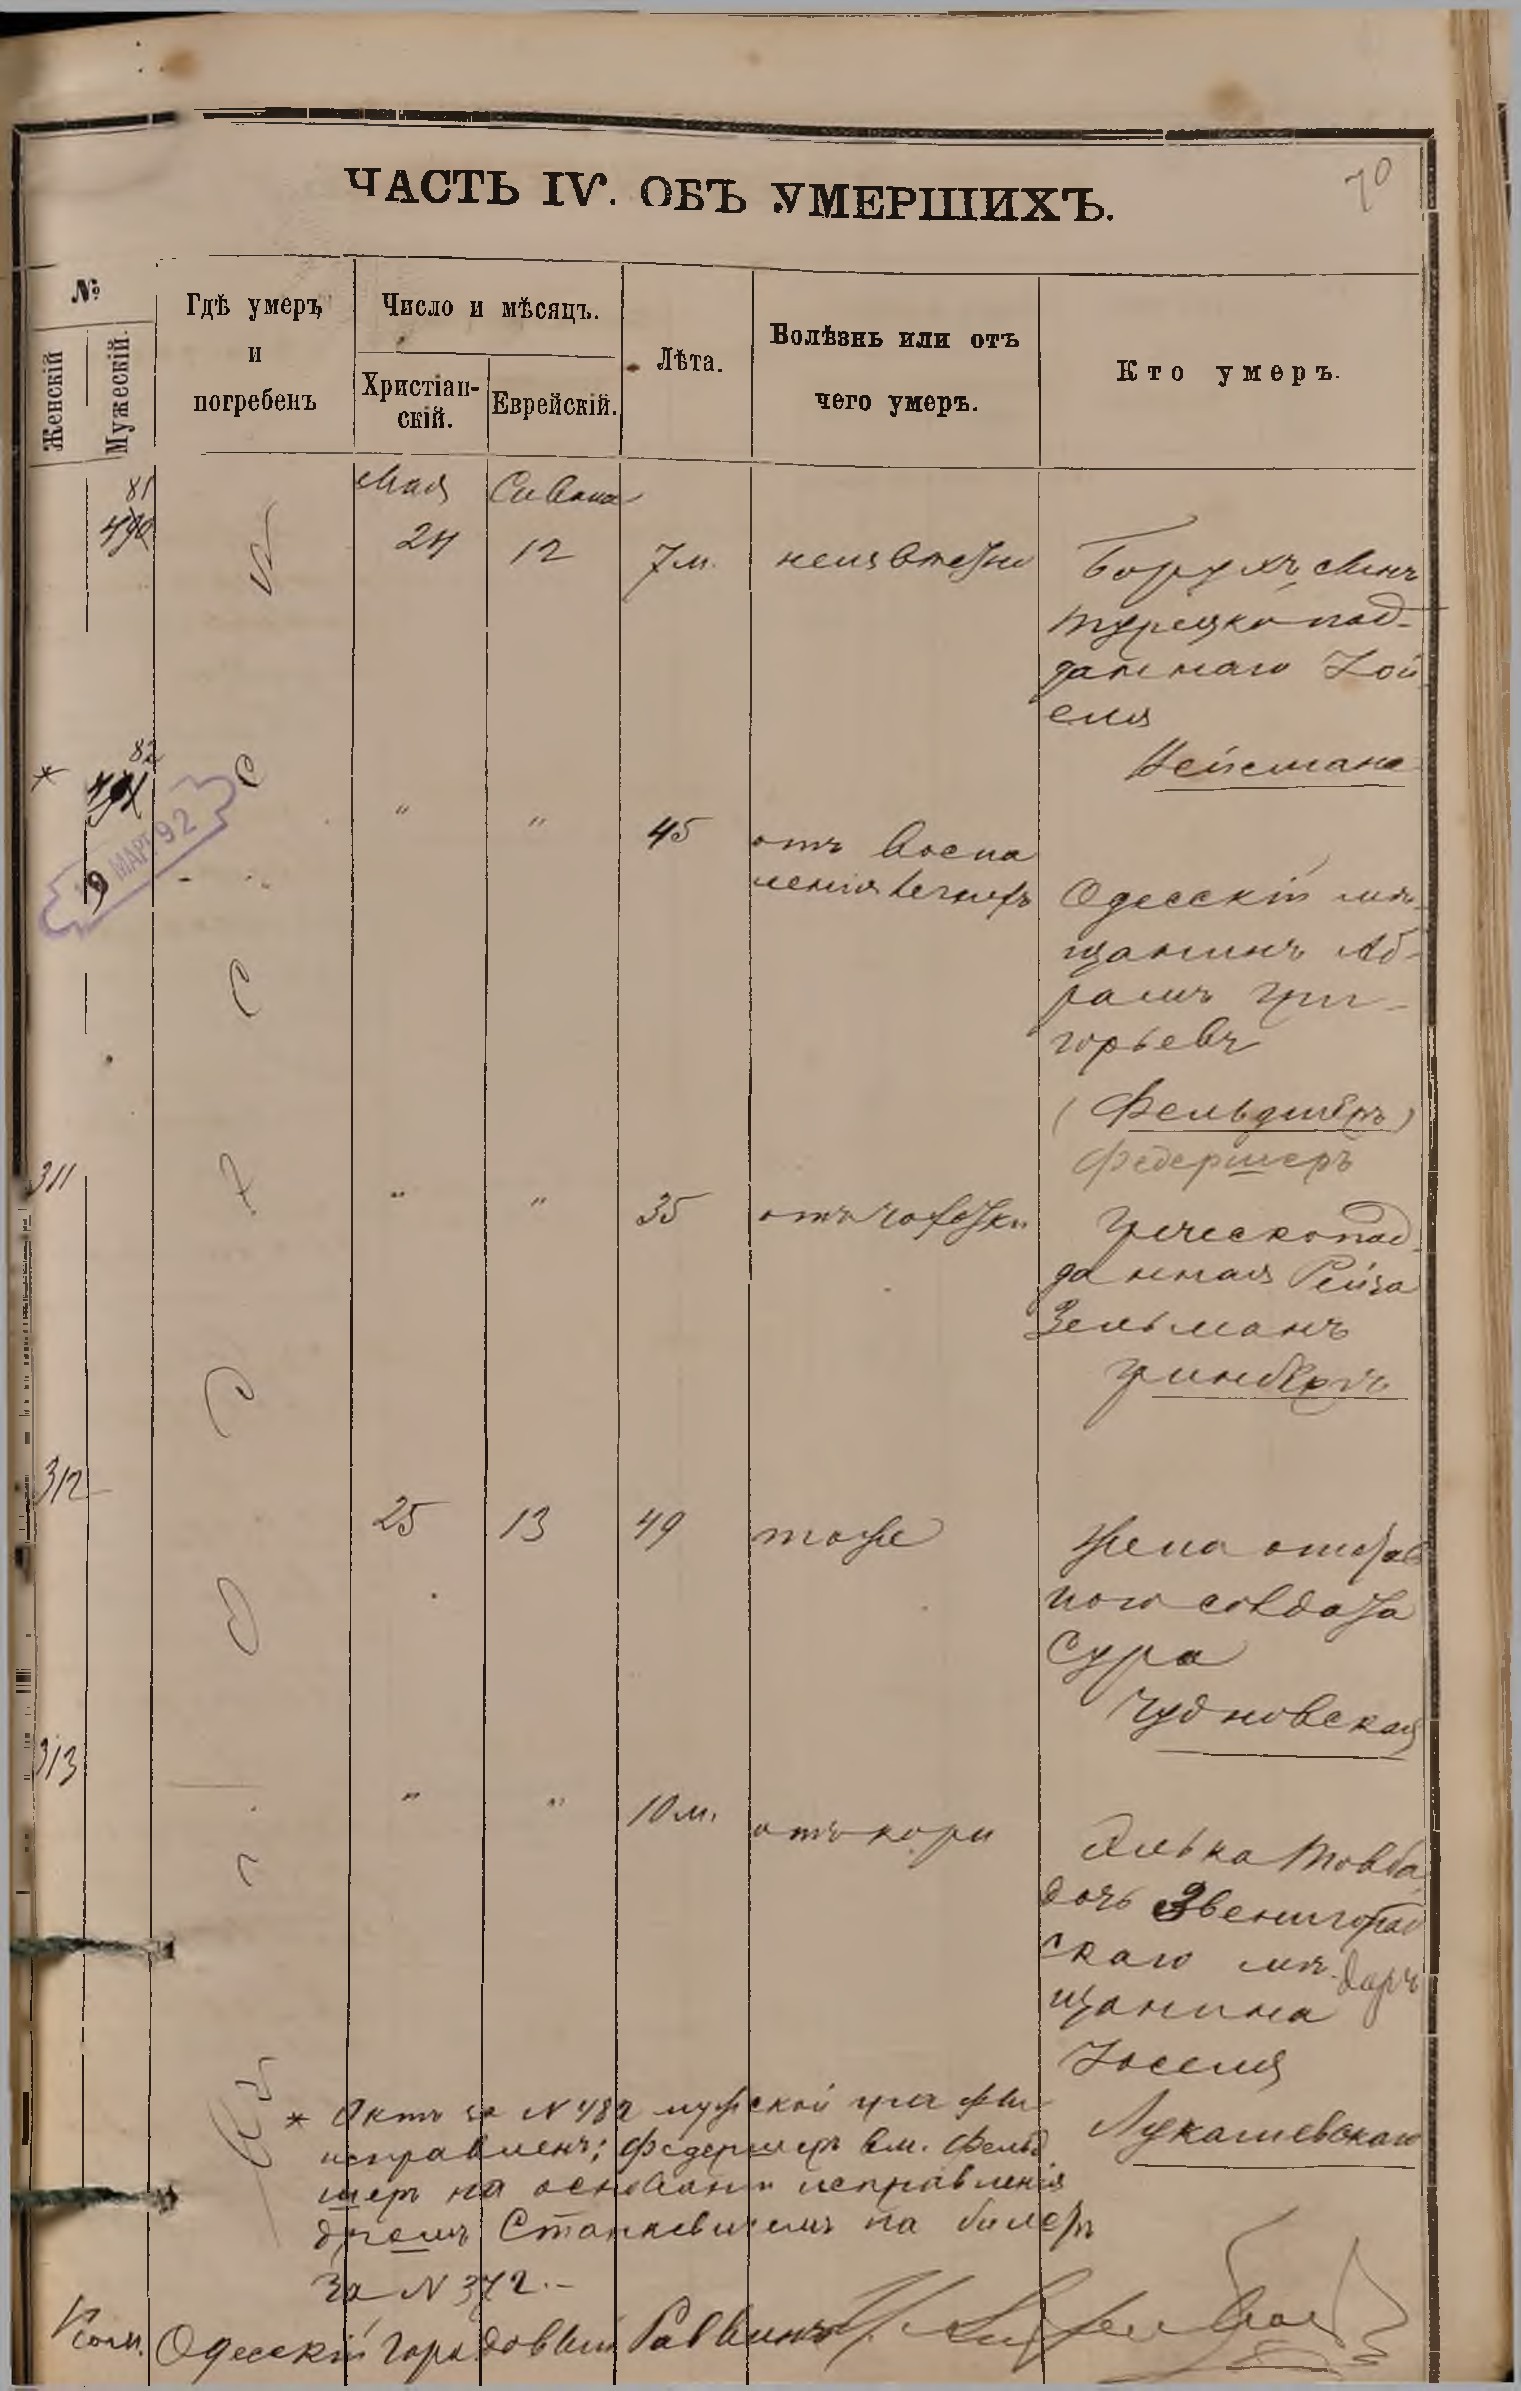 70
ЧАСТЬ IV. ОБЪ УМЕРШИХЪ.
№
Женскій
Мужескій.
Гдѣ умеръ
и
погребенъ
Число и мѣсяцъ.
Христіан-
скій.
Еврейскій.
Лѣта.
Болѣзнь или отъ
чего умеръ.
Кто умеръ.
Мая
Сивана
81
490
24
12
7 м.
неизвѣстно
Борухъ сынъ
турецко под-
даннаго Хой
еля
Нейсмана
82
*
491
19 МАРТ 92
"
"
45
отъ воспа
ленія легкихъ
Одесскій мѣ-
щанинъ Аб-
рамъ Гри-
горьевъ
(Фельдшеръ)
Федершеръ
311
"
"
35
отъ чахотки
Греческопод
данная Рейза
Зельманъ
Гринбергъ
312
25
13
49
тоже
Жена отстав
ного солдата
Сура
Чудновская
313
"
"
10 м.
отъ кори
Элька Товба
дочь Звенигород
скаго мѣ-
щанина
Іоселя
Лукашевскаго
* Актъ за N 482 мужской графы
исправленъ: Федершеръ вм. Фельд
шеръ на основании исправленія
Станкевичемъ на билетѣ
за N 372.-
Одесскій Городовый Раввинъ